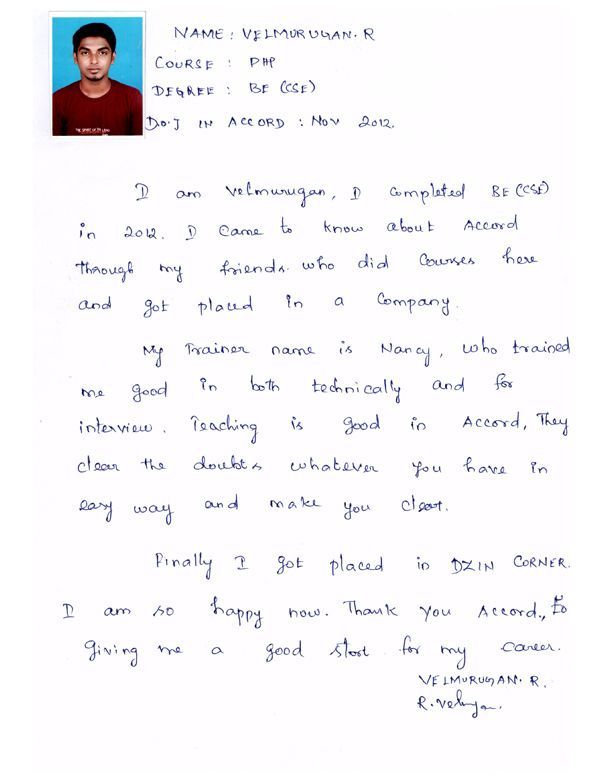 NAME : VELMURUGAN. R
COURSE : PHP
DEGREE : BE (CSE)
D.O.J IN ACCORD : NOV 2012.
I am Velmurugan, I completed BE (CSE)
in 2012. I came to know about Accord
through my friends. who did courses here
and got placed in a company.
My Trainer name is Nancy, who trained
me good in both technically and for
interview. Teaching is good in Accord, They
clear the doubts whatever you have in
easy way and make you clear.
Finally I got placed in DZIN CORNER.
I am so happy now. Thank you Accord.,
giving me a good start for my career.
VELMURUGAN. R.